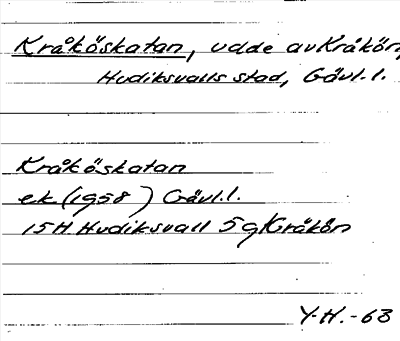 Kråköskatan, udde av Kråkön,
Hudiksvalls stad, Gävl.l.
Kråköskatan
ek (1958) Gävl.l.
15H Hudiksvall 5g Kråkön
Y.H.-63